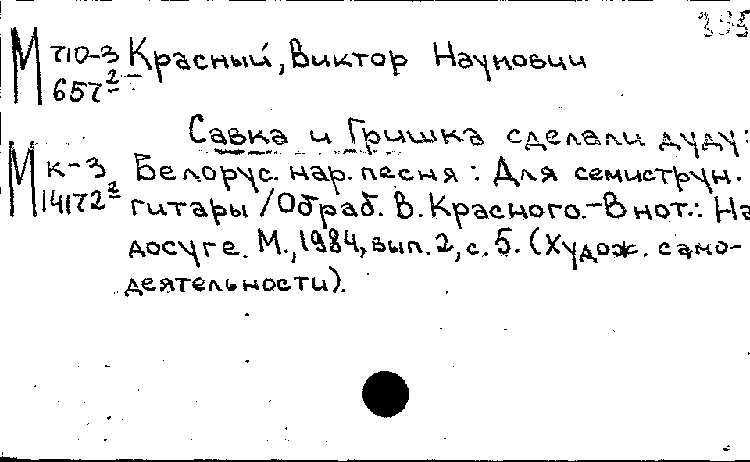 395
М 710-3 Красный, Виктор Наумович
657²
Савка и Гришка сделали дуду:
М К-3 Белорус. нар. песня: Для семиструн.
14172² гитары / Обраб. В. Красного.-В нот.: На
досуге. М., 1984, вып. 2, с. 5. (Худож. само-
деятельности).